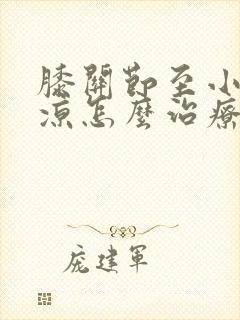 膝關節至小
涼怎麼治療
庞建軍